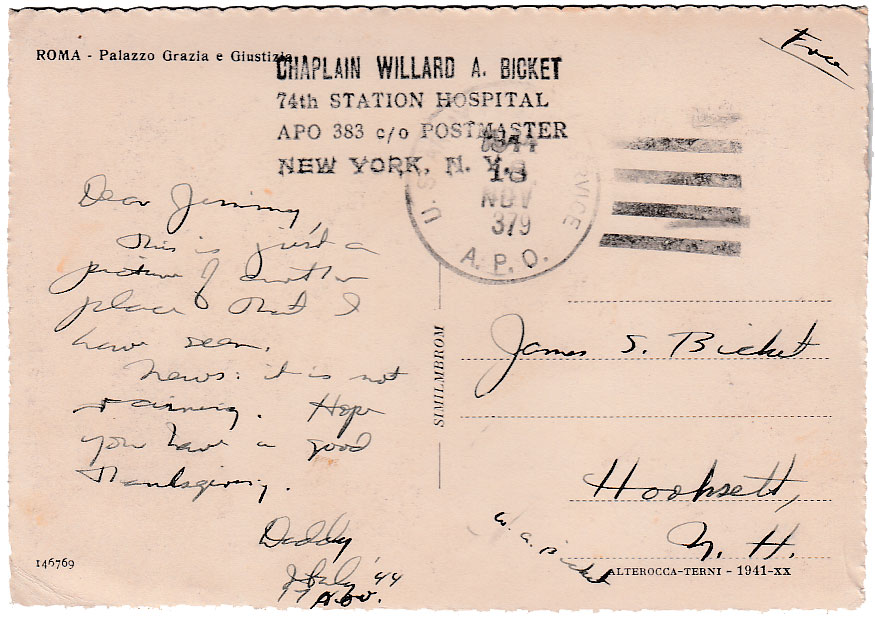 ROMA - Palazzo Grazia e Giustizia
Free
CHAPLAIN WILLARD A. BICKET
74th STATION HOSPITAL
APO 383 c/o POSTMASTER
NEW YORK, N. Y.
U.S. ARMY SERVICE
1944
18
NOV
379
A. P. O.
Dear Jimmy
This is just a
picture of another
place that I
have seen.
News: it is not
raining. Hope
you have a good
Thanksgiving.
Daddy
Italy '44
17 Nov.
SIMILMBROM
James S. Bicket
Hooksett,
N. H.
W. A. Bicket
146769
ALTEROCCA-TERNI - 1941-XX